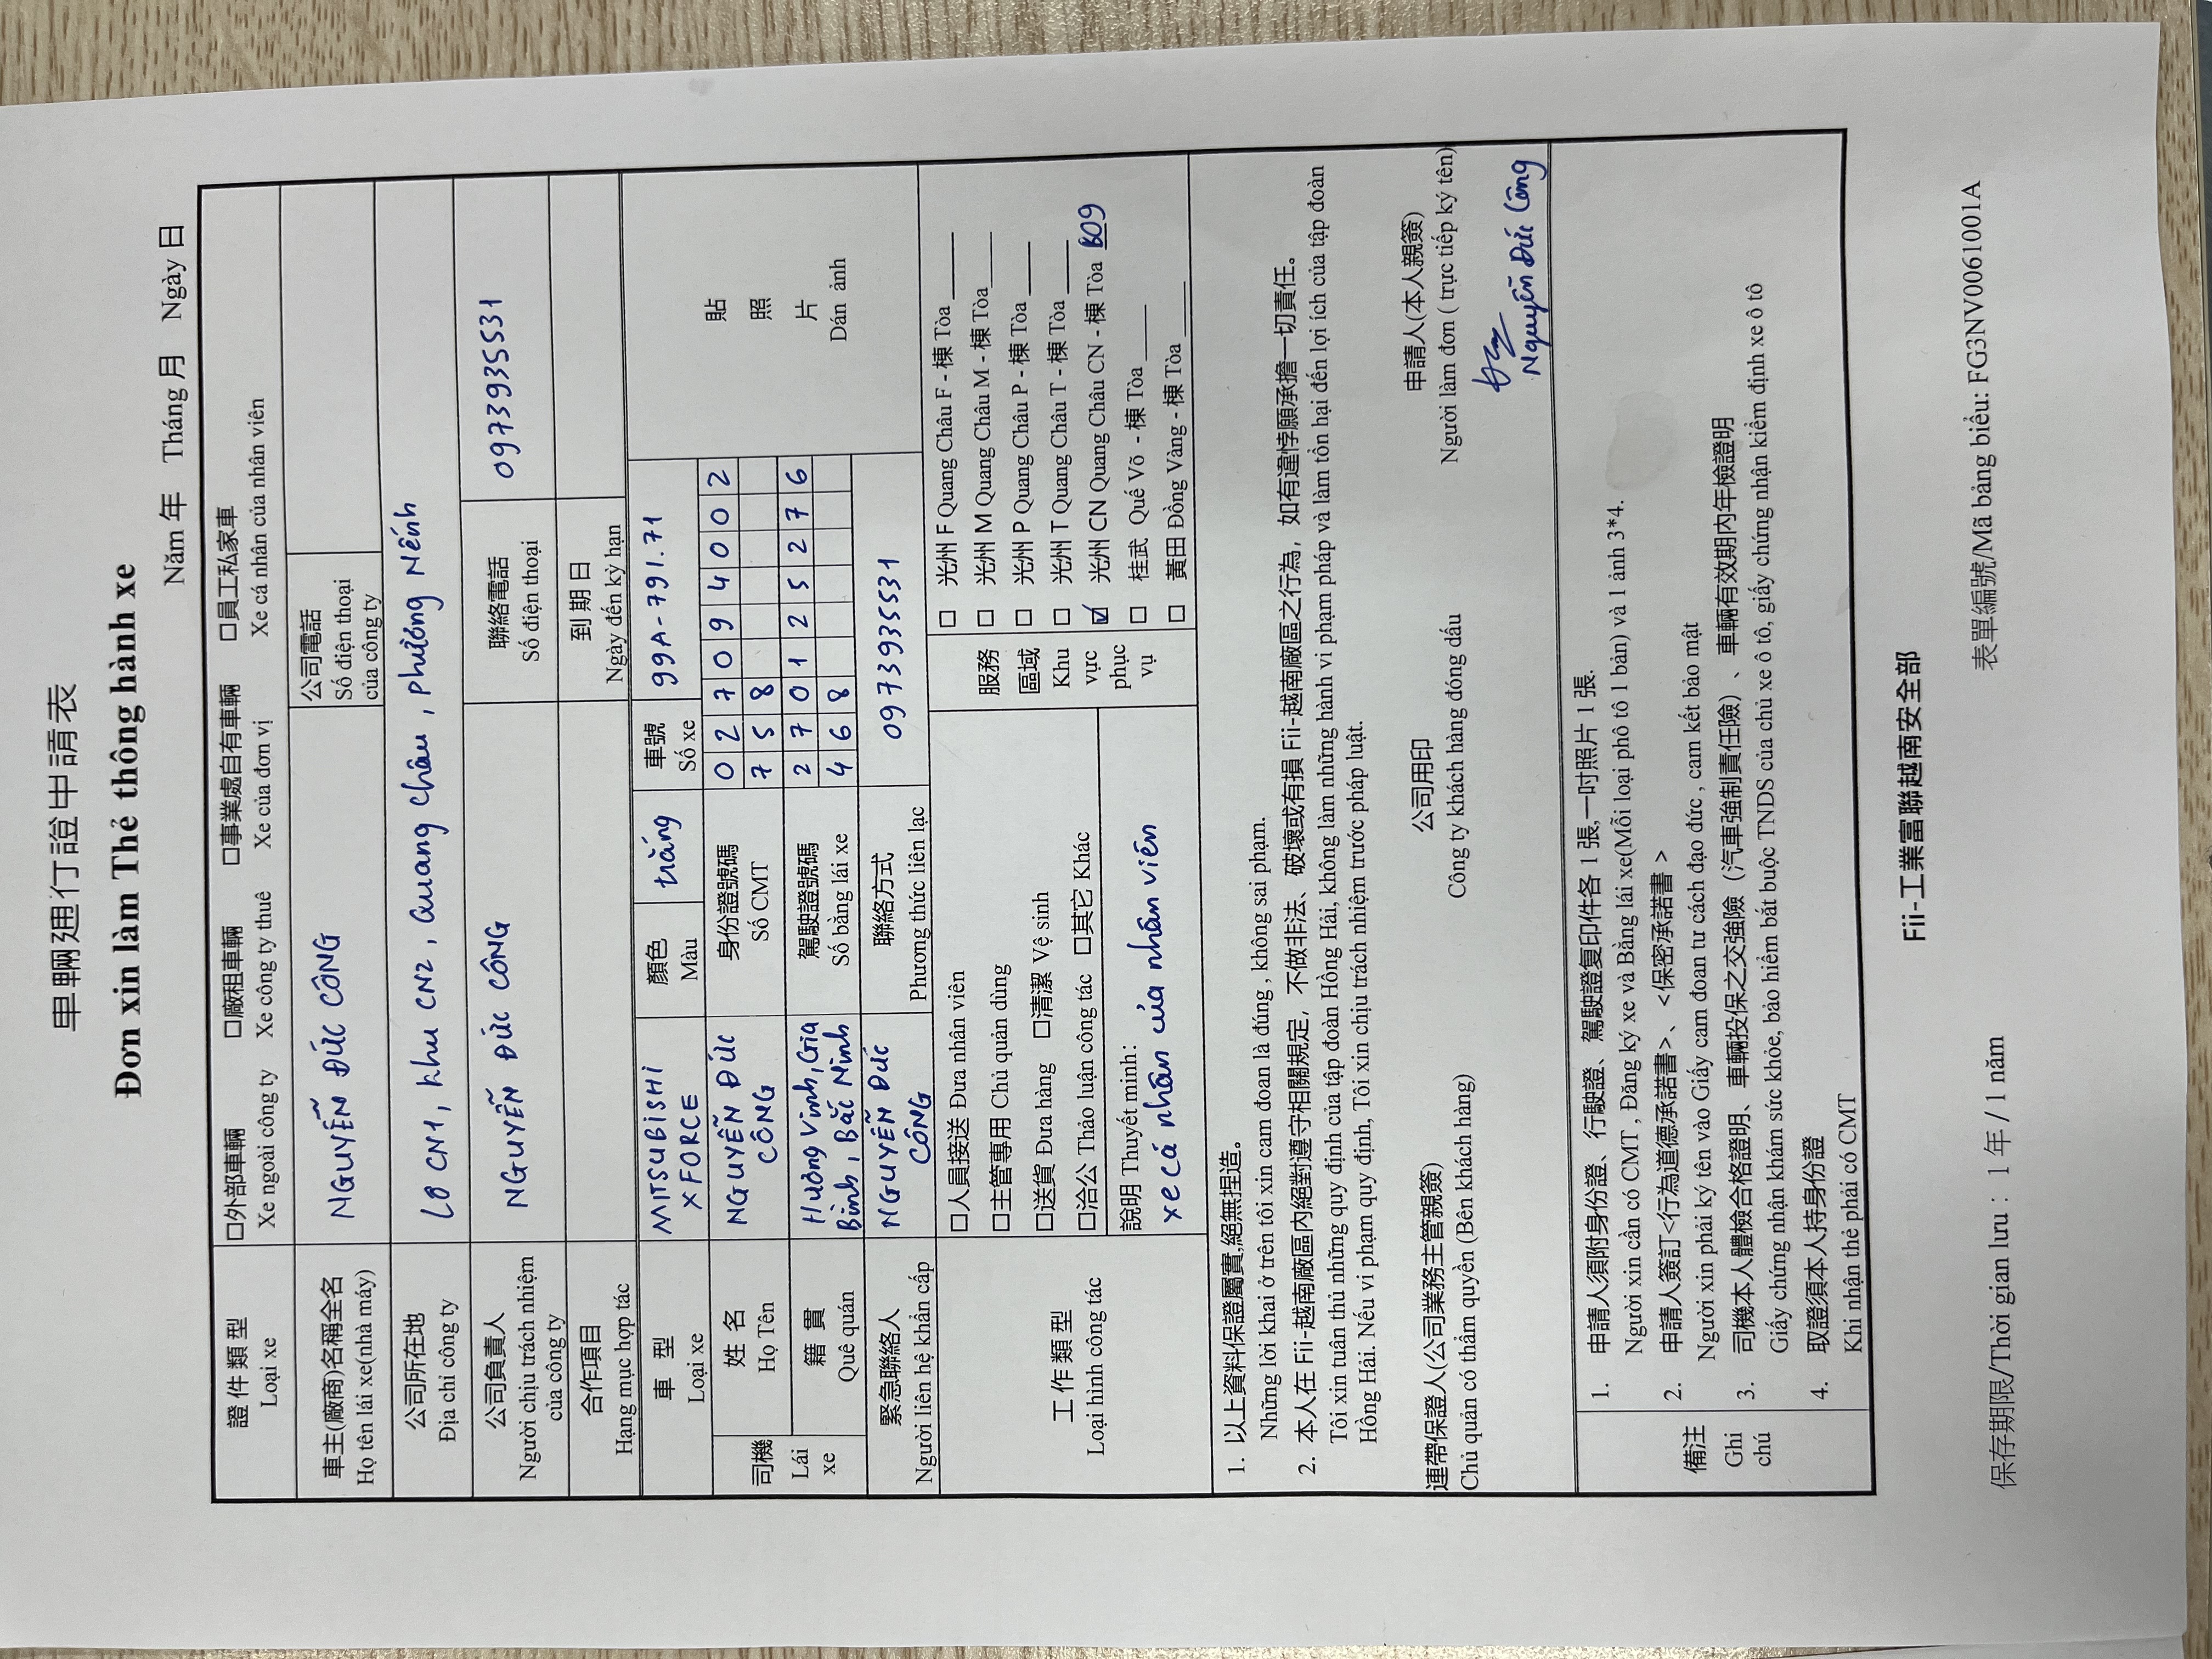 車輛通行證申請表
Đơn xin làm Thẻ thông hành xe
Năm 年 Tháng 月 Ngày 日
證件類型 □外部車輛 □廠租車輛 □事業處自有車輛 □員工私家車
Loại xe Xe ngoài công ty Xe công ty thuê Xe của đơn vị Xe cá nhân của nhân viên
車主(廠商)名稱全名
Họ tên lái xe(nhà máy)
NGUYỄN ĐỨC CÔNG
公司電話
Số điện thoại
của công ty
公司所在地
Địa chỉ công ty
Lô CN1, Khu CN2, Quang Châu, Phường Nếnh
公司負責人
Người chịu trách nhiệm
của công ty
NGUYỄN ĐỨC CÔNG
聯絡電話
Số điện thoại
0973935531
合作項目
Hạng mục hợp tác
到期日
Ngày đến kỳ hạn
車型
Loại xe
MITSUBISHI
XFORCE
顏色
Màu
trắng
車號
Số xe
99A-791.71
司機
Lái
xe
姓名
Họ Tên
NGUYỄN ĐỨC
CÔNG
身份證號碼
Số CMT
0 2 7 0 9 4 0 0 2
7 5 8
籍貫
Quê quán
Hương Vinh, Gia
Bình, Bắc Ninh
駕駛證號碼
Số bằng lái xe
2 7 0 1 2 5 2 7 6
4 6 8
貼
照
片
Dán ảnh
緊急聯絡人
Người liên hệ khẩn cấp
NGUYỄN ĐỨC
CÔNG
聯絡方式
Phương thức liên lạc
0973935531
工作類型
Loại hình công tác
□人員接送 Đưa nhân viên
□主管專用 Chủ quản dùng
□送貨 Đưa hàng □清潔 Vệ sinh
□洽公 Thảo luận công tác □其它 Khác
說明 Thuyết minh:
xe cá nhân của nhân viên
服務
區域
Khu
vực
phục
vụ
□ 光州 F Quang Châu F - 棟 Tòa _____
□ 光州 M Quang Châu M - 棟 Tòa_____
□ 光州 P Quang Châu P - 棟 Tòa _____
□ 光州 T Quang Châu T - 棟 Tòa _____
☑ 光州 CN Quang Châu CN - 棟 Tòa B09
□ 桂武 Quế Võ - 棟 Tòa _____
□ 黃田 Đồng Vàng - 棟 Tòa _____
1. 以上資料保證屬實,絕無捏造。
Những lời khai ở trên tôi xin cam đoan là đúng , không sai phạm.
2. 本人在 Fii-越南廠區內絕對遵守相關規定，不做非法、破壞或有損 Fii-越南廠區之行為，如有違悖願承擔一切責任。
Tôi xin tuân thủ những quy định của tập đoàn Hồng Hải, không làm những hành vi phạm pháp và làm tổn hại đến lợi ích của tập đoàn
Hồng Hải. Nếu vi phạm quy định, Tôi xin chịu trách nhiệm trước pháp luật.
連帶保證人(公司業務主管親簽) 公司用印 申請人(本人親簽)
Chủ quản có thẩm quyền (Bên khách hàng) Công ty khách hàng đóng dấu Người làm đơn ( trực tiếp ký tên)
Nguyễn Đức Công
備注
Ghi
chú
1. 申請人須附身份證、行駛證、駕駛證复印件各 1 張,一吋照片 1 張.
Người xin cần có CMT , Đăng ký xe và Bằng lái xe(Mỗi loại phô tô 1 bản) và 1 ảnh 3*4.
2. 申請人簽訂<行為道德承諾書>、<保密承諾書 >
Người xin phải ký tên vào Giấy cam đoan tư cách đạo đức , cam kết bảo mật
3. 司機本人體檢合格證明、車輛投保之交強險（汽車強制責任險）、車輛有效期內年檢證明
Giấy chứng nhận khám sức khỏe, bảo hiểm bắt buộc TNDS của chủ xe ô tô, giấy chứng nhận kiểm định xe ô tô
4. 取證須本人持身份證
Khi nhận thẻ phải có CMT
Fii-工業富聯越南安全部
保存期限/Thời gian lưu : 1 年 / 1 năm 表單編號/Mã bảng biểu: FG3NV0061001A